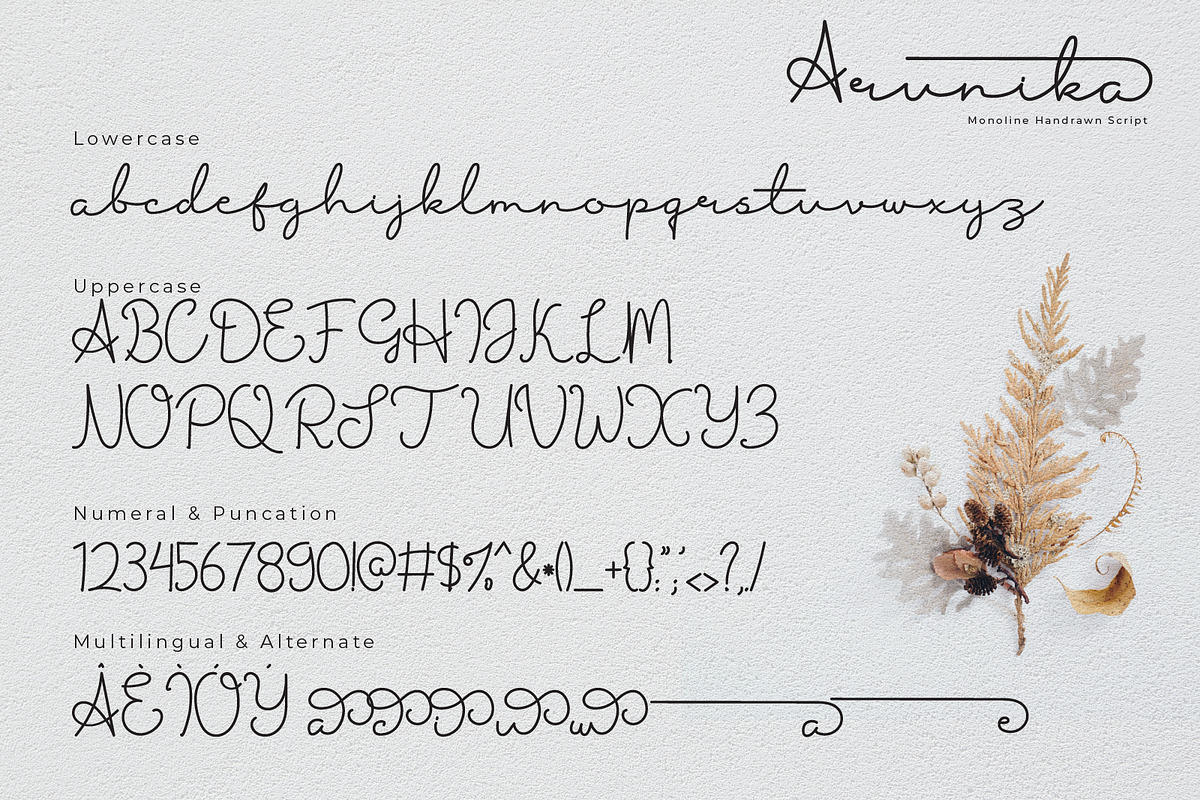 Arunika
Monoline Handrawn Script
Lowercase
abcdefghijklmnopqrstuvwxyz
Uppercase
ABCDEFGHIJKLM
NOPQRSTUVWXYZ
Numeral & Puncation
1234567890!@#$%^&*()_+{}:"';<>?,./
Multilingual & Alternate
ÂÈÌÓÝ a e i u w a e